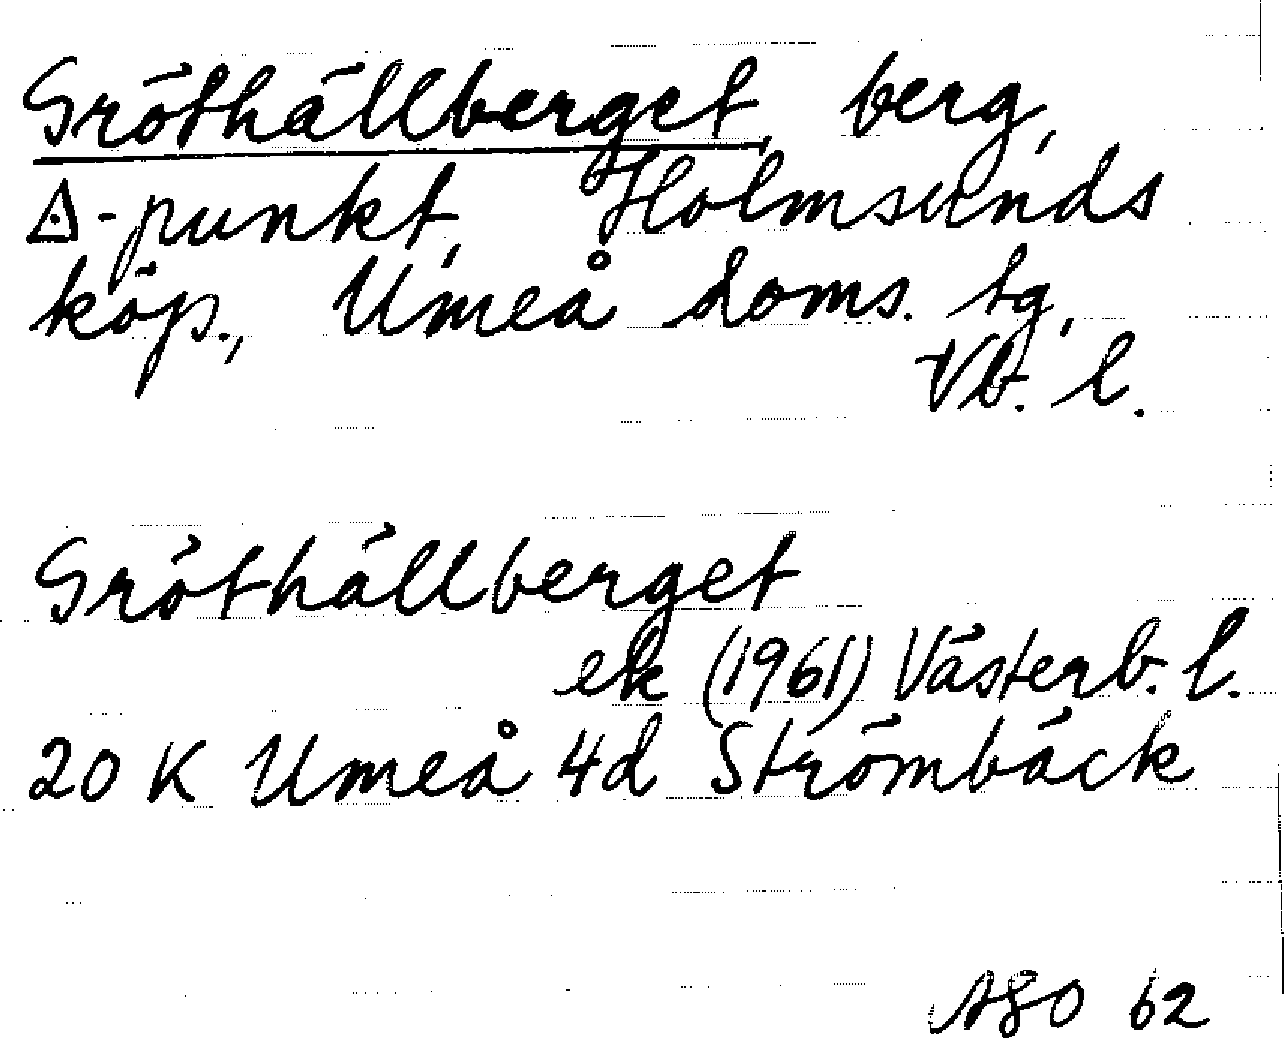 Gröthällberget, berg,
△-punkt, Holmsunds
köp., Umeå doms. tg,
Vb. l.
Gröthällberget
ek (1961) Västerb. l.
20 K Umeå 4d Strömbäck
62